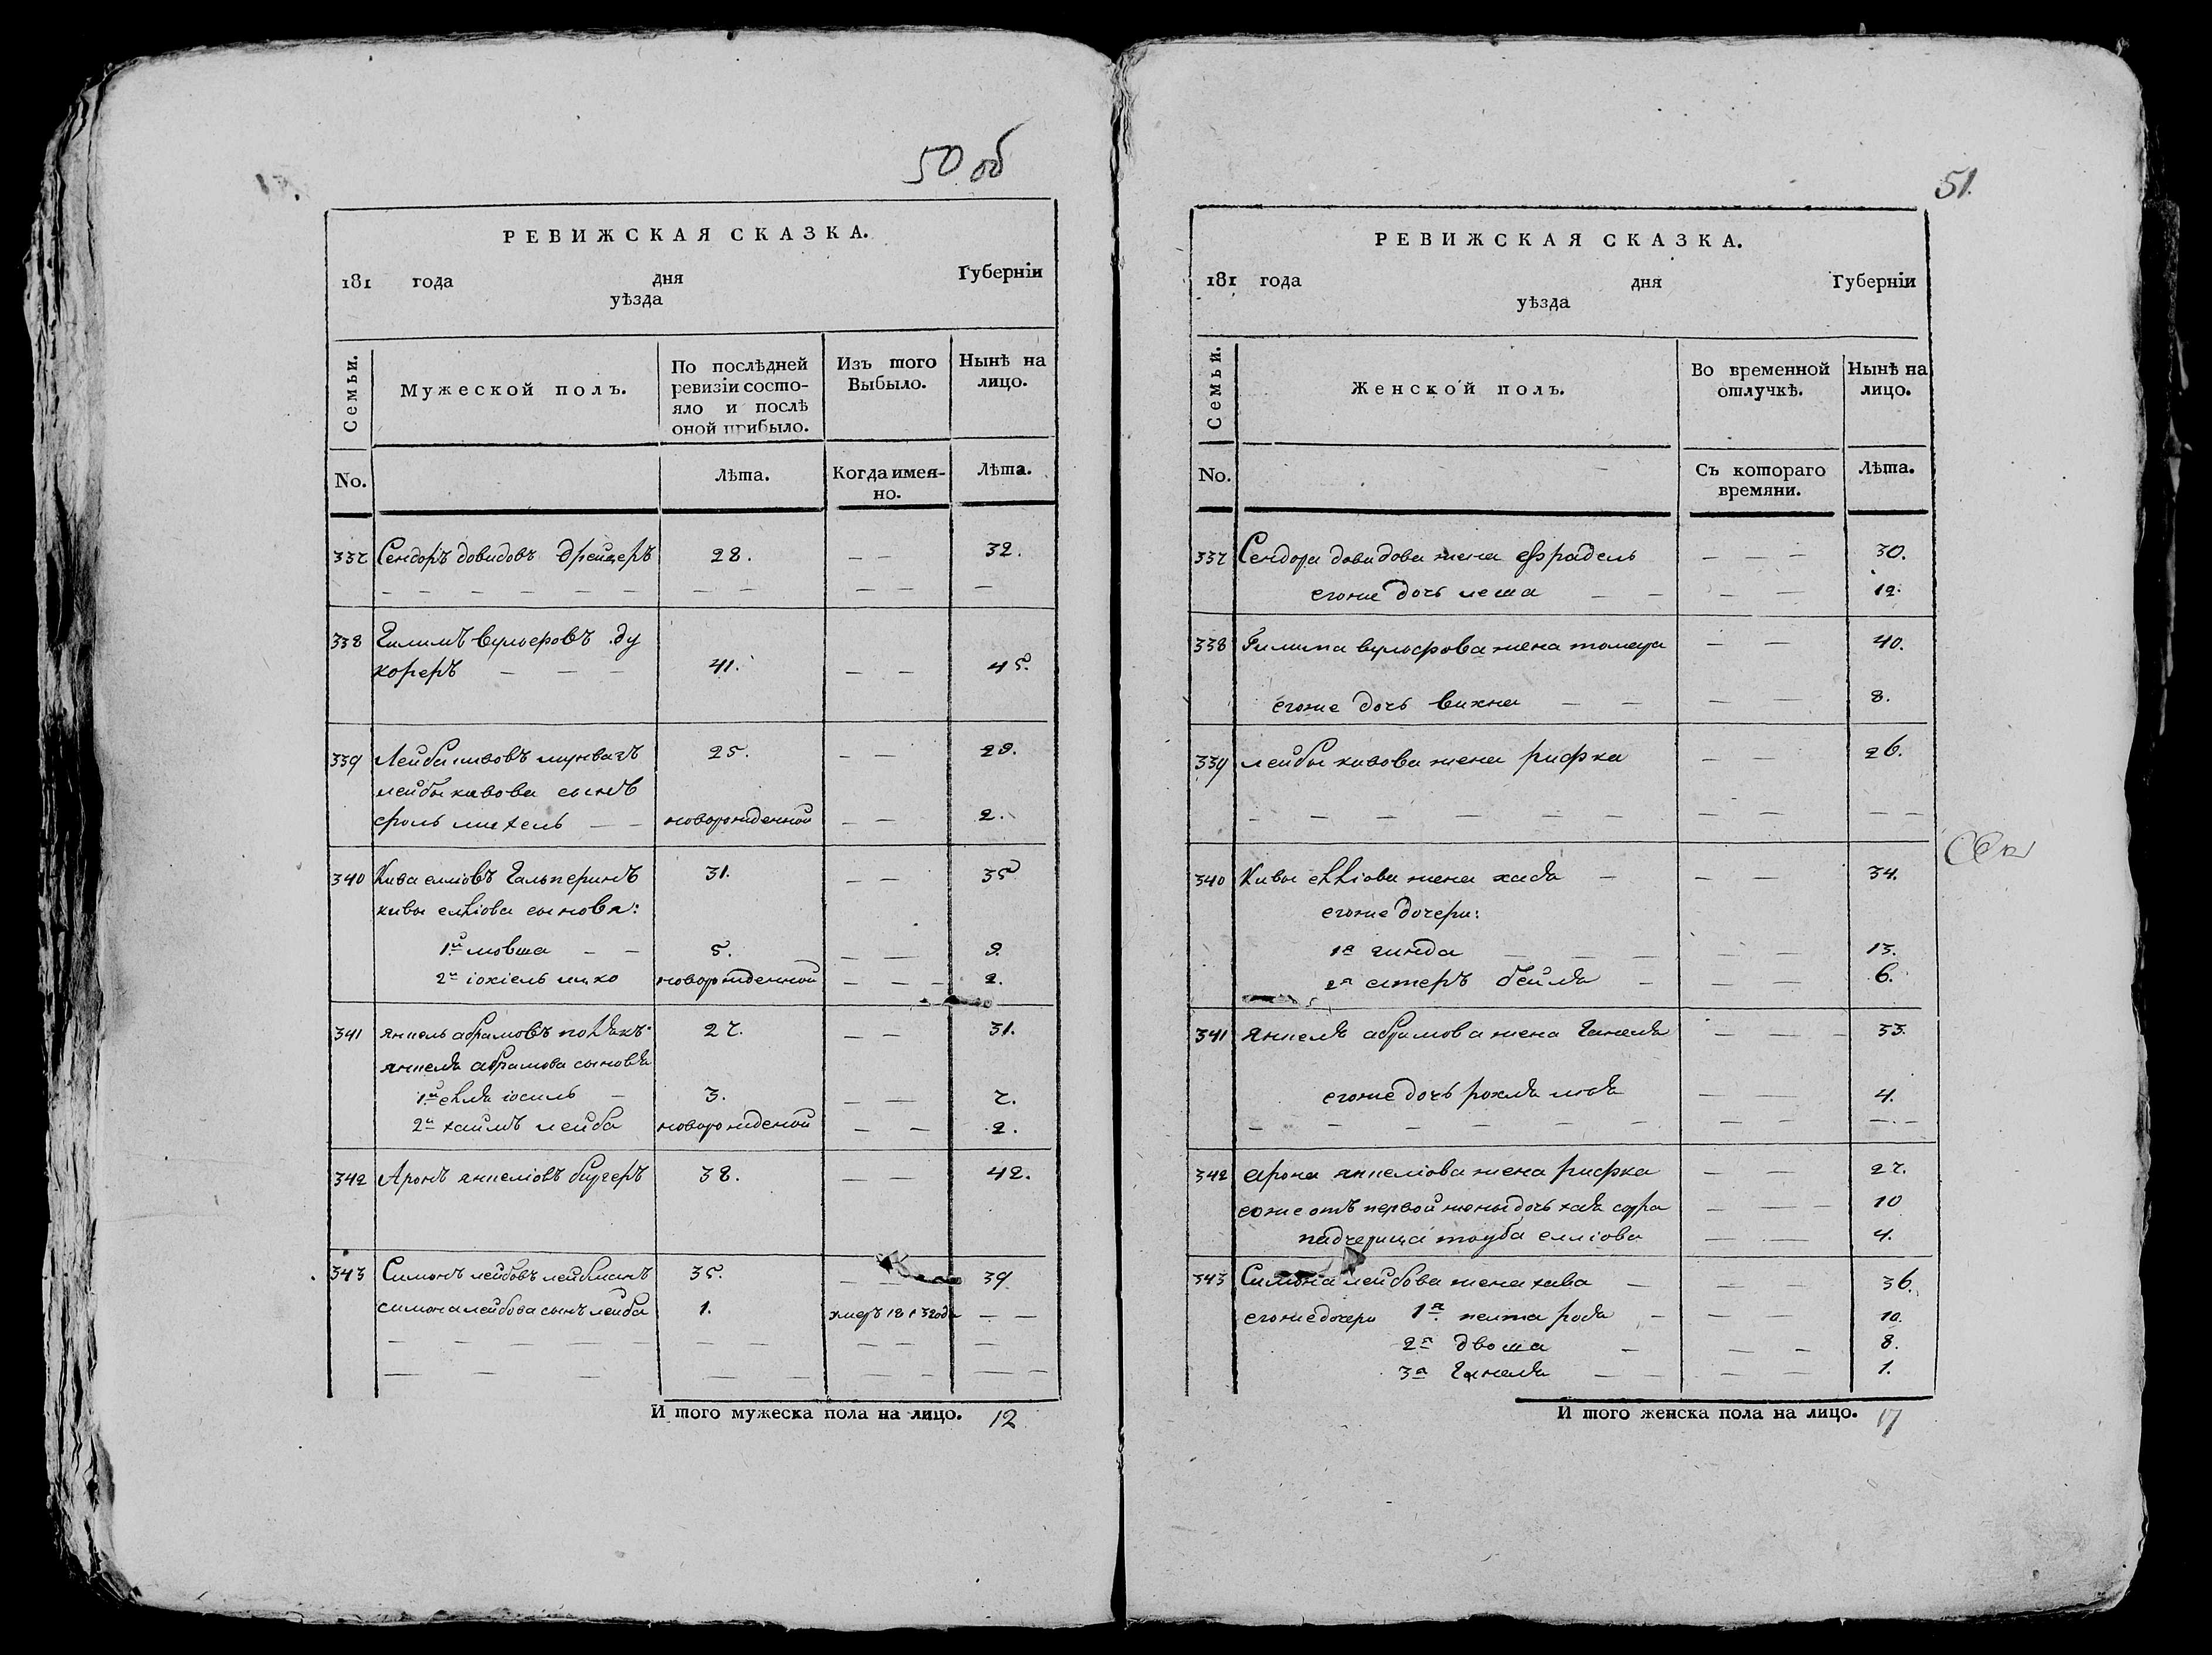 50 об
РЕВИЖСКАЯ СКАЗКА.
181 года дня Губерніи
уѣзда
Семьи.
Мужеской полъ.
По послѣдней ревизіи состо-
яло и послѣ оной прибыло.
Изъ того Выбыло.
Нынѣ на лицо.
No.
Лѣта.
Когда имен-
но.
Лѣта.
337 Сендоръ довидовъ Дрейцеръ 28. — — 32.
338 Гилимъ вульфовъ ду
хореръ — — — 41. — — 45.
339 Лейба кивовъ 25. — — 29.
лейбы кивова сынъ
сроль михель — — новорожденной — — 2.
340 Кива елліовъ Гальперинъ 31. — — 35
кивы елліова сыновя:
1й мовша — — 5. — — 9.
2й іохіель ицко новорожденной — — — 2.
341 янкель абрамовъ полякъ 27. — — 31.
янкеля абрамова сыновя
1й еля іосиль — 3. — — 7.
2й хаимъ лейба новорожденой — — 2.
342 Аронъ янкеліовъ 38. — — 42.
343 Симонъ лейбовъ лейбманъ 35. — — 39.
симона лейбова сынъ лейба 1. умеръ 1813 года — —
И того мужеска пола на лицо. 12
51.
РЕВИЖСКАЯ СКАЗКА.
181 года дня Губерніи
уѣзда
Семьи.
Женской полъ.
Во временной отлучкѣ.
Нынѣ на лицо.
No.
Съ котораго времяни.
Лѣта.
337 Сендора довидова жена фрадель — — — 30.
егоже дочь леша — — — — 12.
338 Гилима вульфова жена — — 40.
егоже дочь вихна — — — — 8.
339 лейбы кивова жена рифка — — 26.
340 Кивы елліова жена хая — — — 34.
егоже дочери:
1я гинда — — — 13.
2я естеръ бейля — — — 6.
341 янкеля абрамова жена Ганеля — — — 33.
егоже дочь рохля — — 4.
342 арона янкеліова жена рифка — — 27.
егоже отъ первой жены дочь хая сура — — — 10
падчерица тауба елліова — — 4.
343 Симона лейбова жена хава — — — 36.
егоже дочери 1я. — — — 10.
2я двоша — — — 8.
3я Ганеля — — — — 1.
И того женска пола на лицо. 17